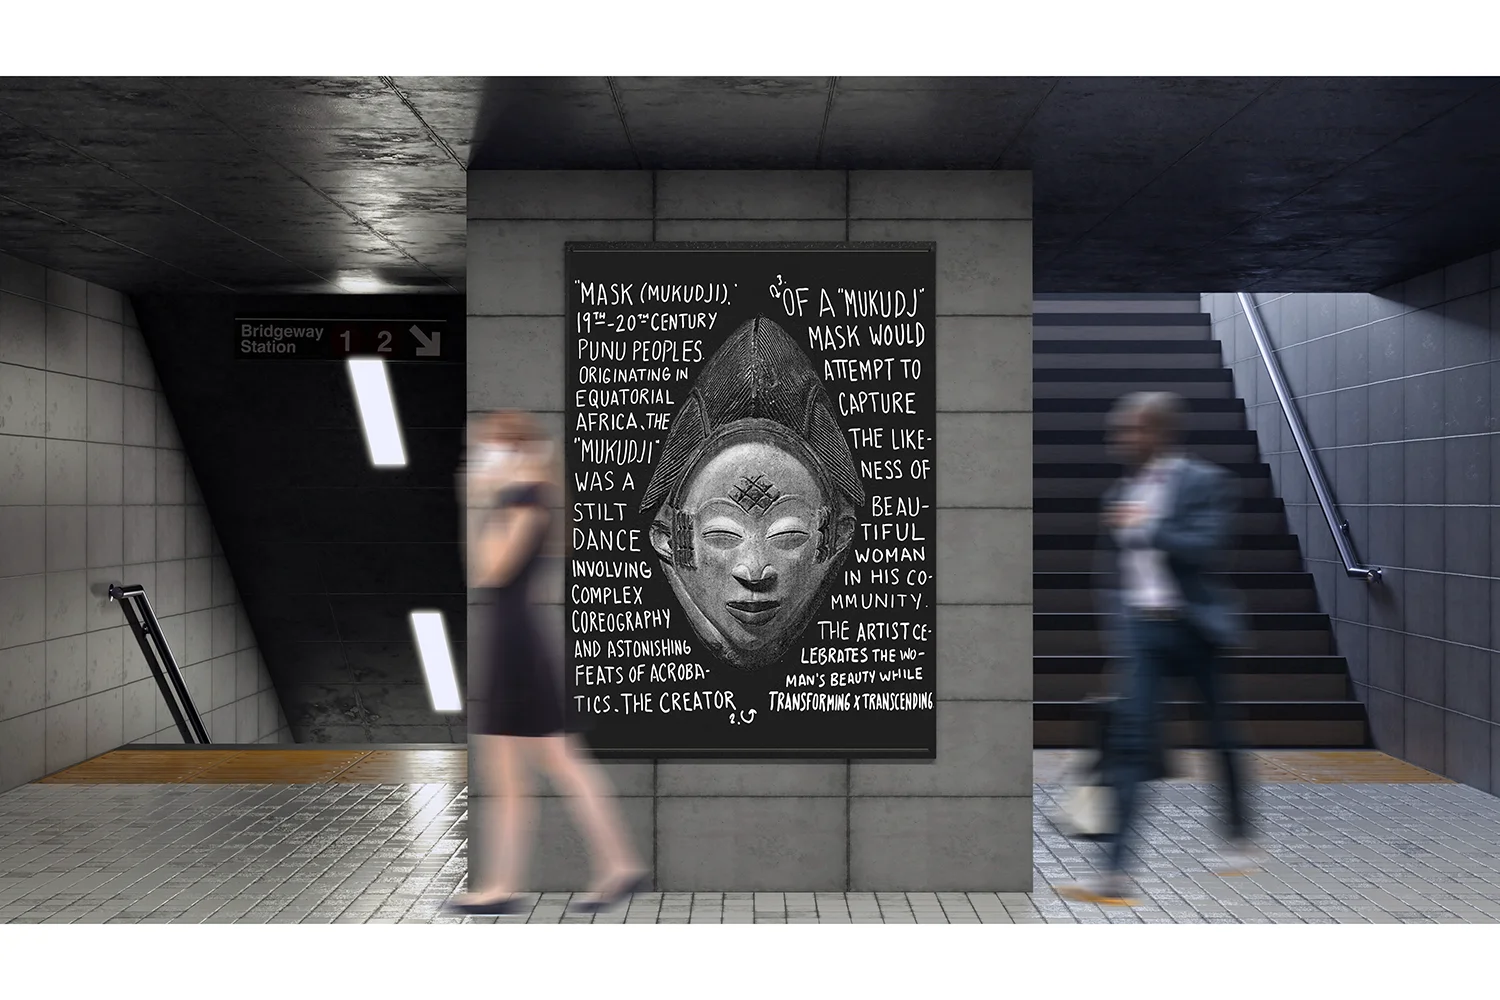 Bridgeway
Station
1 2
"MASK (MUKUDJI)."
19TH-20TH CENTURY
PUNU PEOPLES.
ORIGINATING IN
EQUATORIAL
AFRICA, THE
"MUKUDJI"
WAS A
STILT
DANCE
INVOLVING
COMPLEX
COREOGRAPHY
AND ASTONISHING
FEATS OF ACROBA-
TICS. THE CREATOR
2.
3.
OF A "MUKUDJ"
MASK WOULD
ATTEMPT TO
CAPTURE
THE LIKE-
NESS OF
BEAU-
TIFUL
WOMAN
IN HIS CO-
MMUNITY.
THE ARTIST CE-
LEBRATES THE WO-
MAN'S BEAUTY WHILE
TRANSFORMING X TRANSCENDING